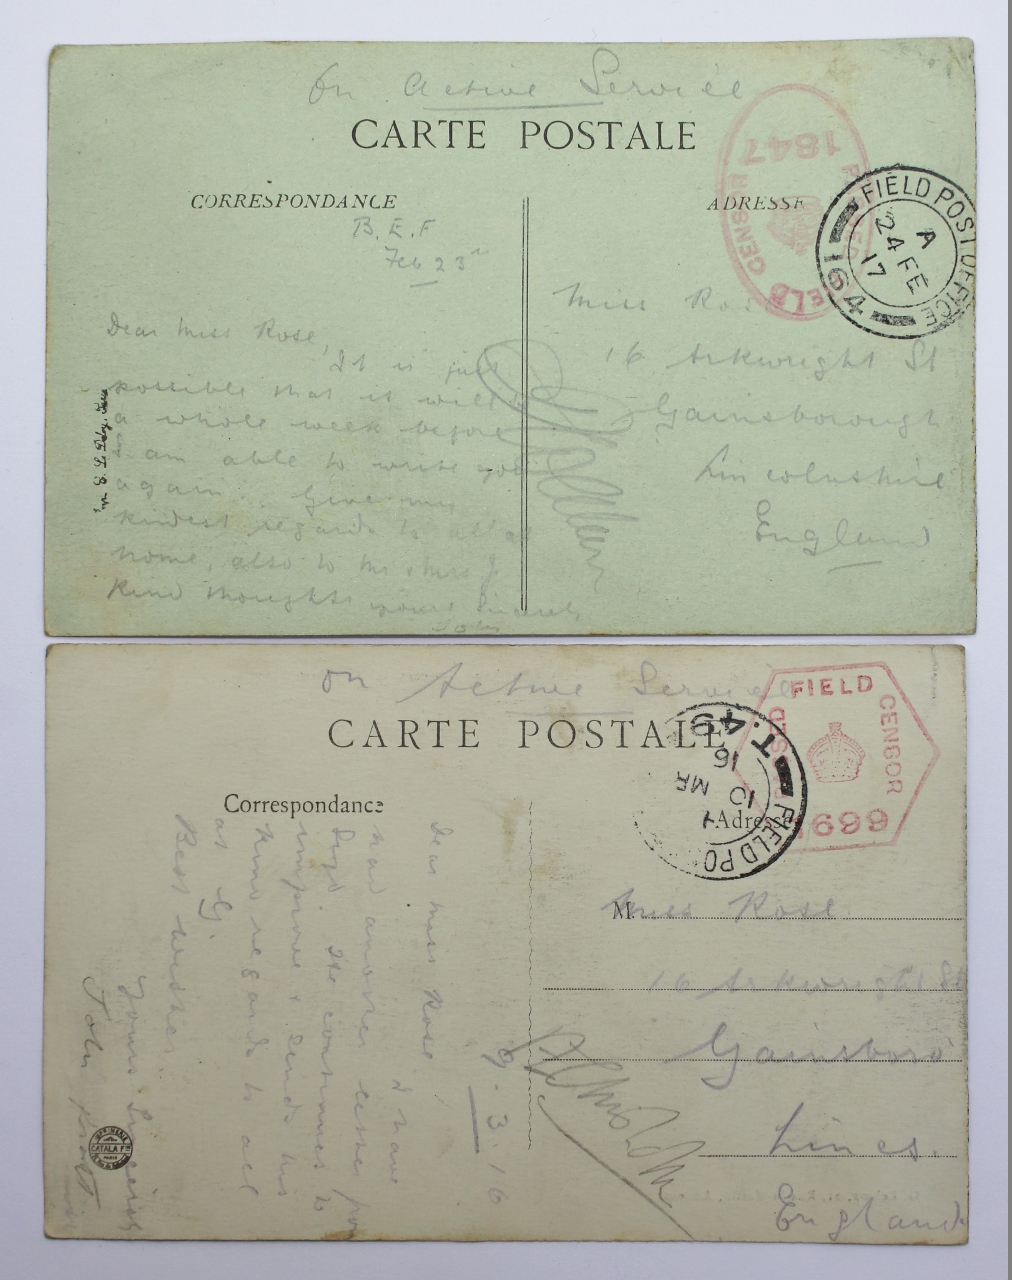 On Active Service
CARTE POSTALE
CORRESPONDANCE
ADRESSE
PASSED FIELD CENSOR
1847
FIELD POST OFFICE
A
24 FE
17
164
B.E.F
Feb 23rd
Dear Miss Rose,
It is just
possible that it will be
a whole week before
I am able to write you
again. Give my
kindest regards to all at
home, also to Mr & Mrs J
Kind thoughts yours Sincerely
John
Miss Rose
16 Arkwright St
Gainsborough
Lincolnshire
England
On Active Service
CARTE POSTALE
Correspondance
Adresse
PASSED FIELD CENSOR
1699
FIELD PO
10 MR
16
T.49
9.3.16
Dear Miss Rose,
I have
had another letter from
He continues to
improve & sends his
kind regards to all
at G.
Best wishes
Yours Sincerely
John
M.
Miss Rose
16 Arkwright St
Gainsboro'
Lincs.
England
IMPRIMERIE
CATALA FRES
PARIS